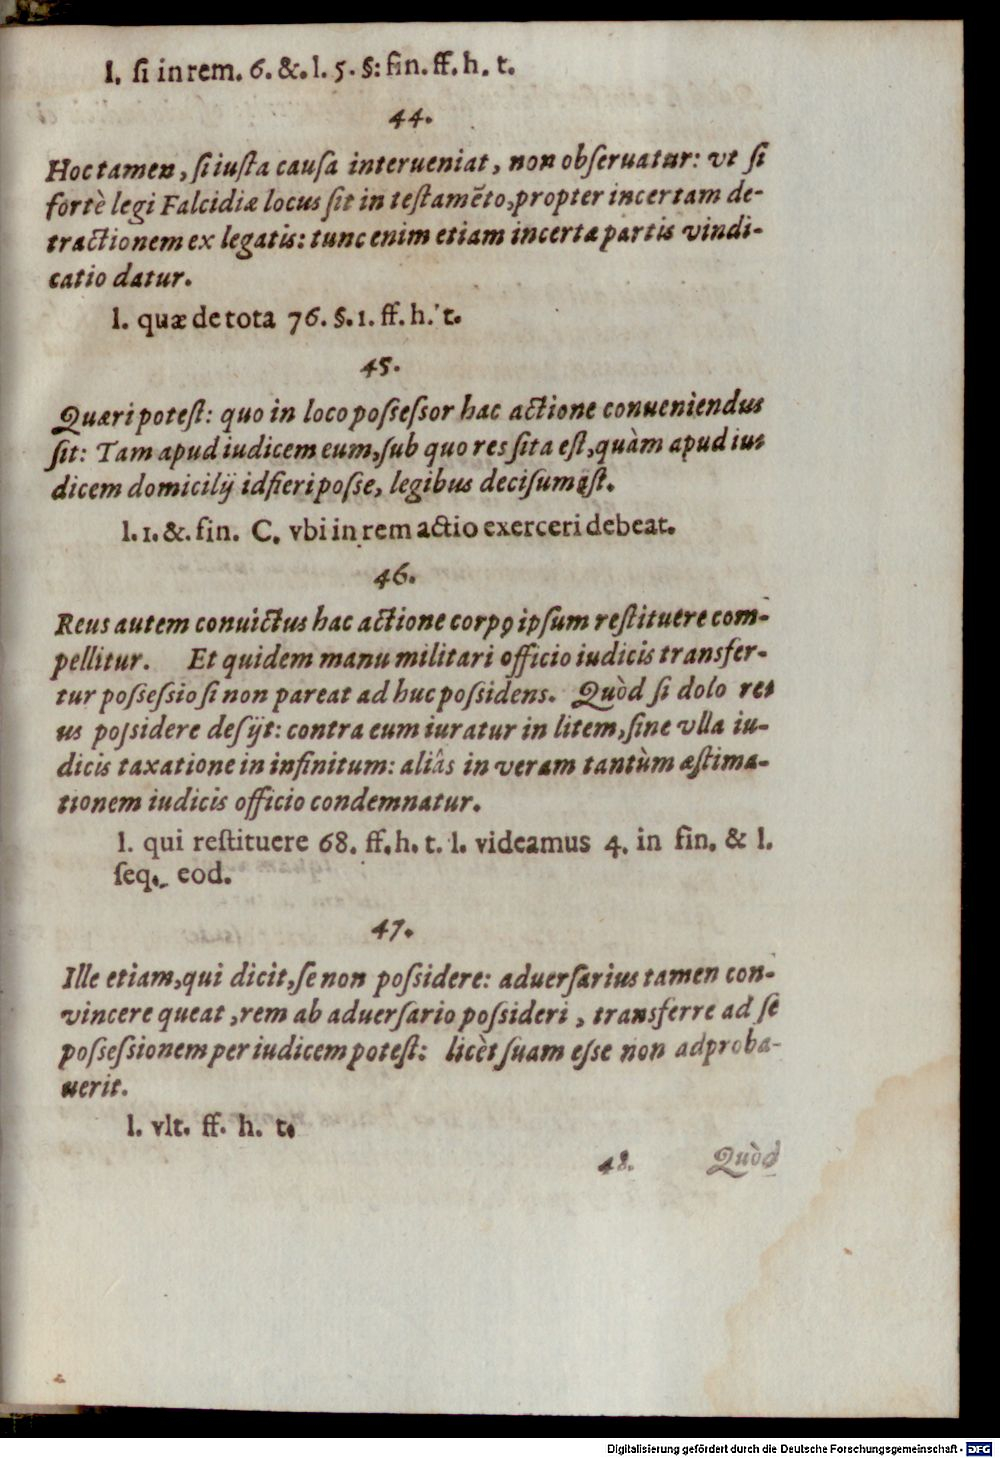 l. ſi in rem. 6. &. l. 5. §: fin. ff. h. t.
44.
Hoc tamen, ſi iuſta cauſa interueniat, non obſeruatur: vt ſi
fortè legi Falcidiæ locus ſit in teſtamẽto, propter incertam de-
tractionem ex legatis: tunc enim etiam incertæ partis vindi-
catio datur.
l. quæ de tota 76. §. 1. ff. h. t.
45.
Quæri poteſt: quo in loco poſſeſſor hac actione conueniendus
ſit: Tam apud iudicem eum, ſub quo res ſita eſt, quàm apud iu-
dicem domicilij id fieri poſſe, legibus deciſum eſt.
l. 1. &. fin. C. vbi in rem actio exerceri debeat.
46.
Reus autem conuictus hac actione corpꝰ ipſum reſtituere com-
pellitur. Et quidem manu militari officio iudicis transfer-
tur poſſeſſio ſi non pareat ad huc poſſidens. Quòd ſi dolo re-
us poſſidere deſijt: contra eum iuratur in litem, ſine vlla iu-
dicis taxatione in infinitum: aliâs in veram tantùm æſtima-
tionem iudicis officio condemnatur.
l. qui reſtituere 68. ff. h. t. l. videamus 4. in fin. & l.
ſeq. eod.
47.
Ille etiam, qui dicit, ſe non poſſidere: aduerſarius tamen con-
vincere queat, rem ab aduerſario poſſideri, transferre ad ſe
poſſeſſionem per iudicem poteſt: licèt ſuam eſſe non adproba-
uerit.
l. vlt. ff. h. t.
48. Quòd
Digitalisierung gefördert durch die Deutsche Forschungsgemeinschaft - DFG